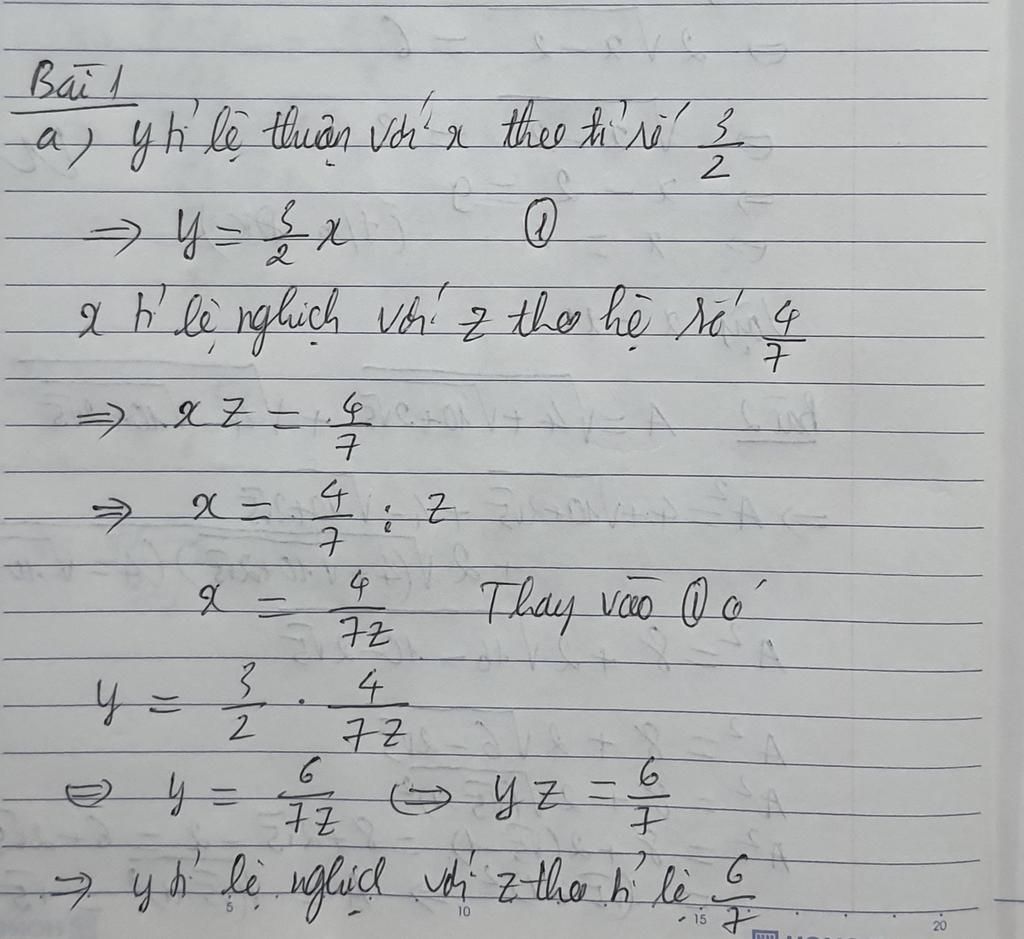 Bài 1
a) y tỉ lệ thuận với x theo tỉ số 3/2
⇒ y = 3/2 x ①
x tỉ lệ nghịch với z theo hệ số 4/7
⇒ xz = 4/7
⇒ x = 4/7 : z
x = 4/7z Thay vào ① có
y = 3/2 . 4/7z
⇔ y = 6/7z ⇔ yz = 6/7
⇒ y tỉ lệ nghịch với z theo tỉ lệ 6/7
5 10 15 20